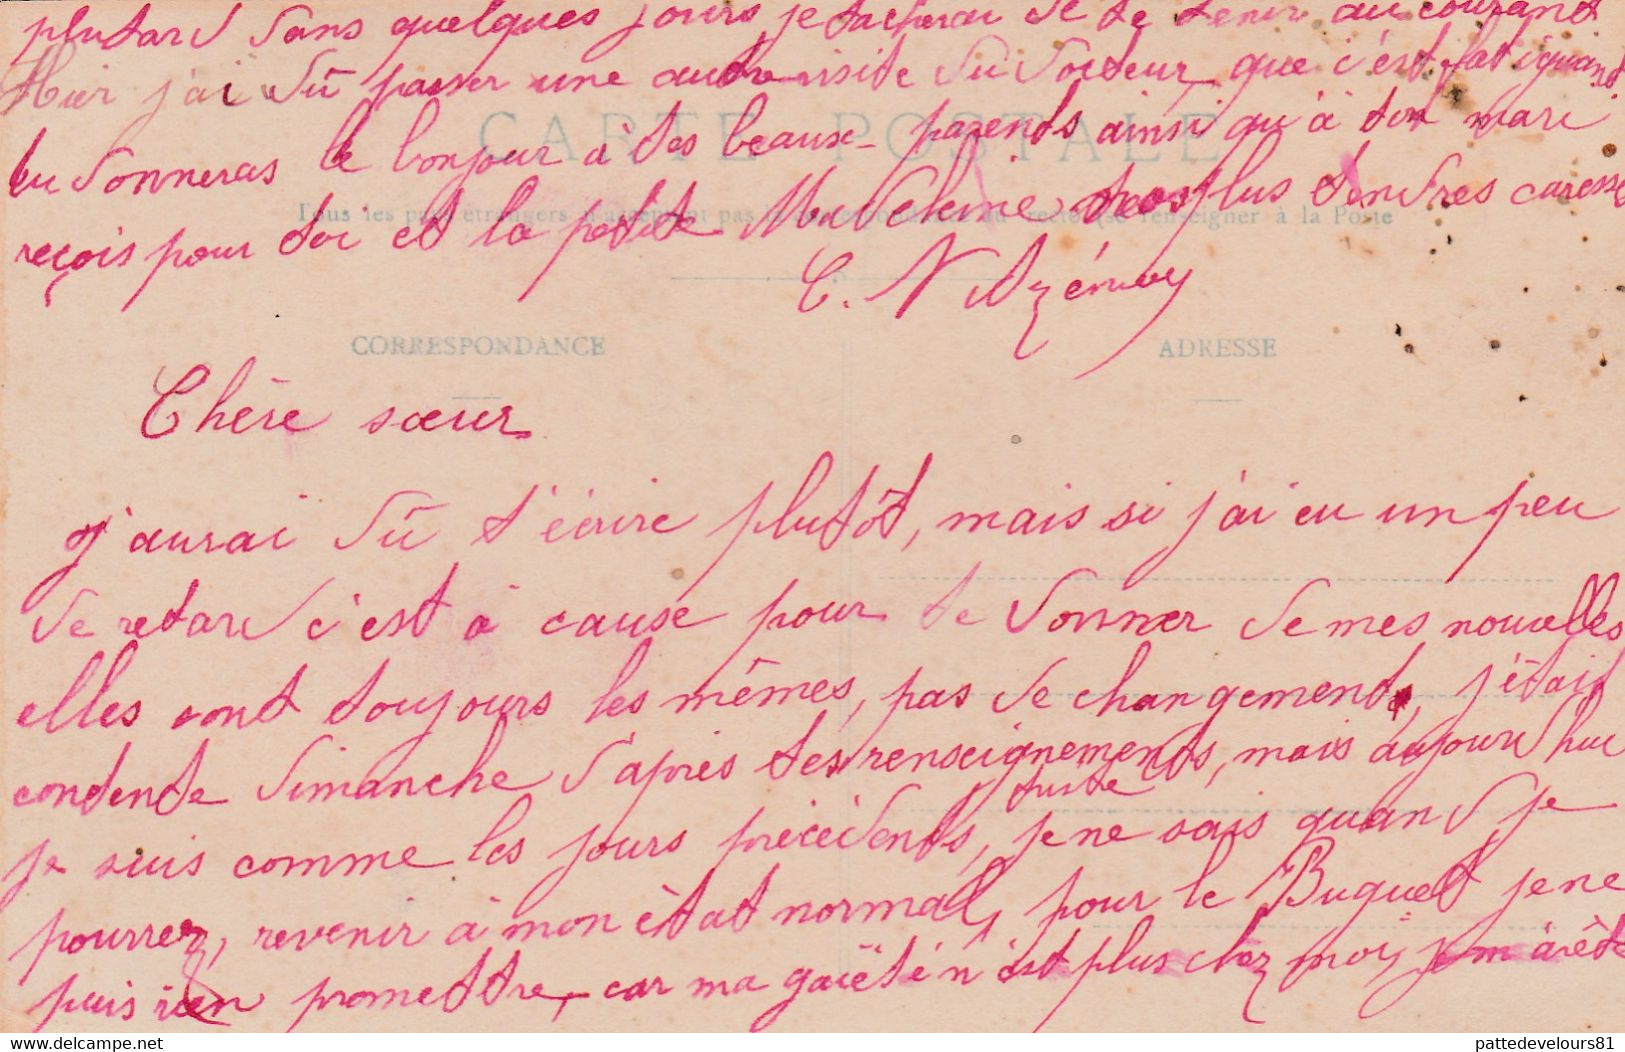 plutard dans quelques jours je tacherai de te tenir au courant
Hier j'ai dû passer une autre visite du docteur, que c'est fatiguant
CARTE POSTALE
tu donneras le bonjour à tes beaux-parents ainsi qu'à ton mari
Tous les pays étrangers n'acceptent pas la correspondance au recto (se renseigner à la Poste
reçois pour toi et la petite Madeleine nos plus tendres caresse
C. N
CORRESPONDANCE
ADRESSE
Chère sœur
j'aurai dû t'écrire plutôt, mais si j'ai eu un peu
de retard c'est à cause pour te donner de mes nouvelles
elles sont toujours les mêmes, pas de changements, j'étais
contente dimanche d'après tes renseignements, mais aujourd'hui
je suis comme les jours précédents, je ne sais quand je
pourrer, revenir à mon êtat normal, pour le Buquet je ne
puis rien promettre, car ma gaïeté n'est plus chez moi, je m'arête
Delcampe.net
pattedevelours81